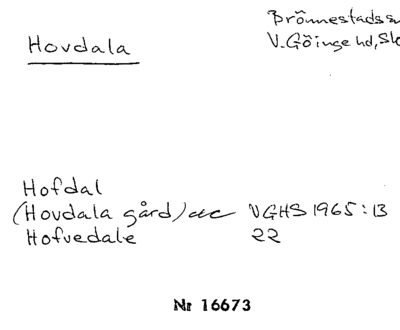 Hovdala
Brönnestads
V.Göinge hd,
Hofdal
(Hovdala gård) VGHS 1965:13
Hofvedale 22
Nr 16673